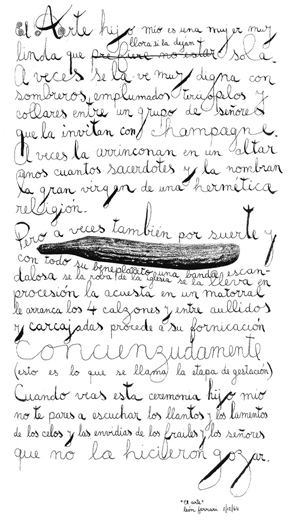 El Arte hijo mío es una mujer muy
llora si la dejan
linda que prefiere no estar sola.
A veces se la ve muy digna con
sombreros emplumados tirusfalos y
collares entre un grupo de señores
que la invitan con champagne.
A veces la arrinconan en un altar
unos cuantos sacerdotes y la nombran
la gran virgen de una hermética
religión.
Pero a veces también por suerte y
con todo su beneplácito una banda escan-
dalosa se la roba de la iglesia se la lleva en
procesión la acuesta en un matorral
le arranca los 4 calzones y entre aullidos
y carcajadas procede a su fornicación
concienzudamente
(esto es lo que se llama la etapa de gestación)
Cuando veas esta ceremonia hijo mío
no te pares a escuchar los llantos y los lamentos
de los celos y las envidias de los frailes y los señores
que no la hicieron gozar.
"El arte"
león ferrari